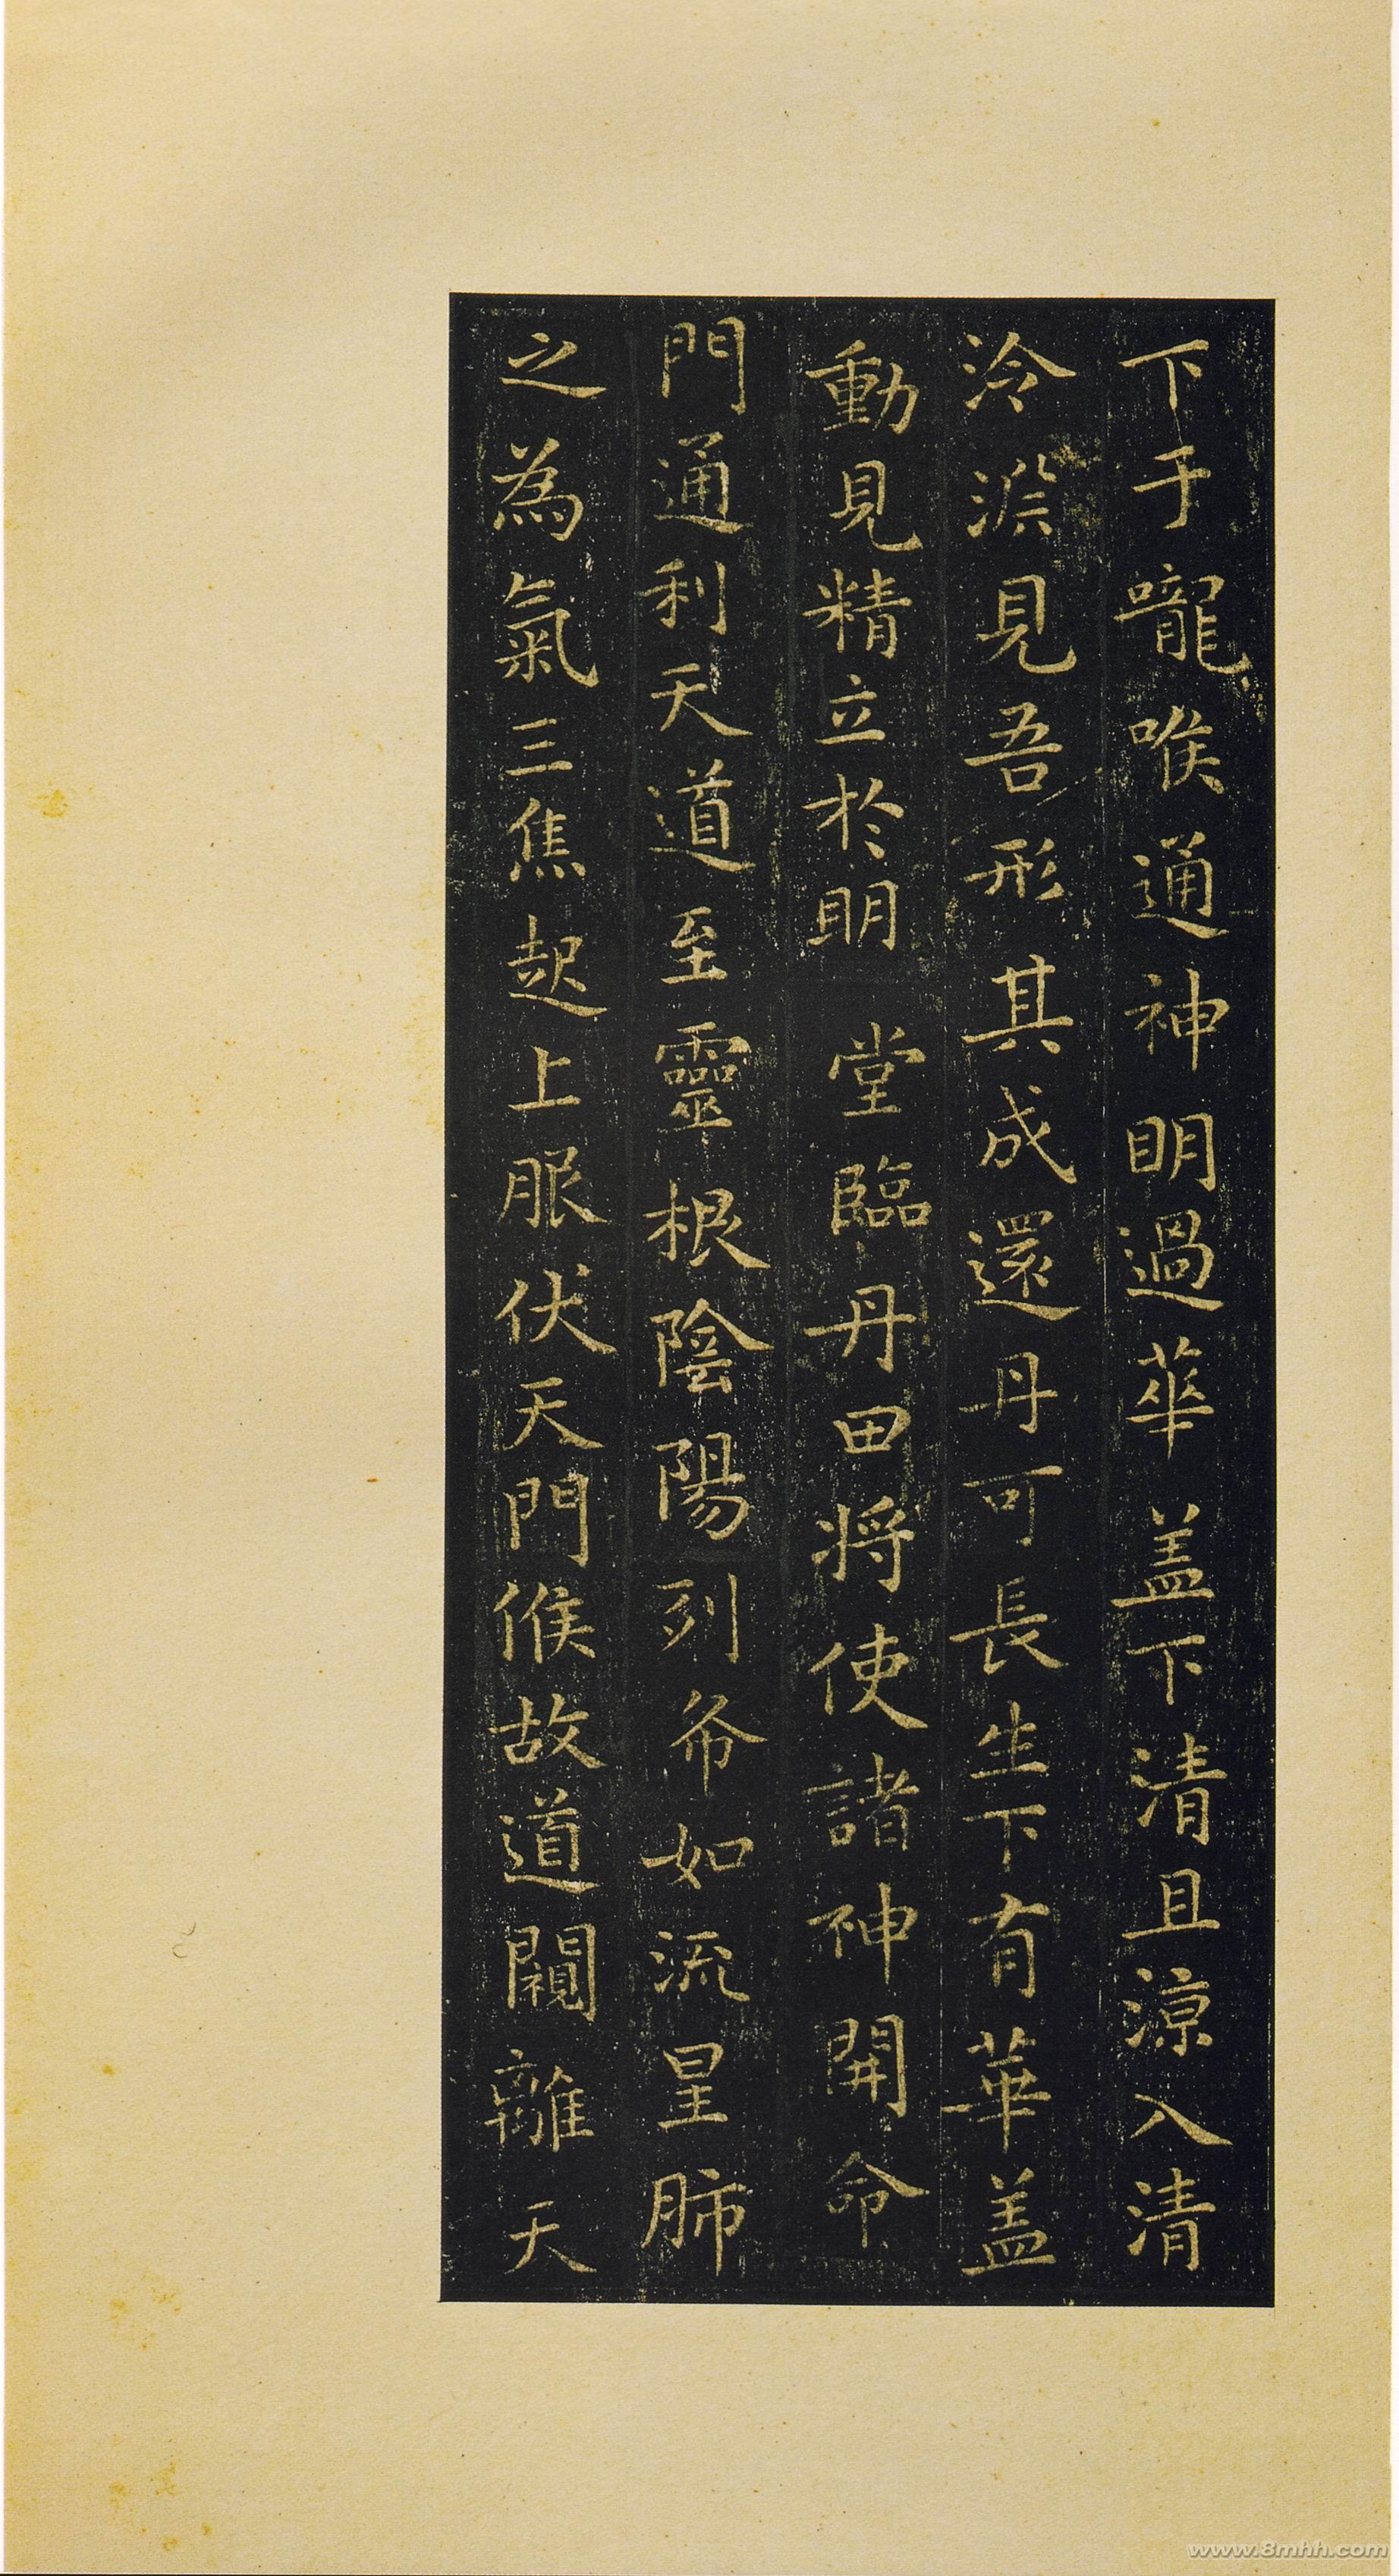 下于嚨喉通神明過華盖下清且涼入清
泠淵見吾形其成還丹可長生下有華盖
動見精立於明堂臨丹田將使諸神開命
門通利天道至靈根陰陽列布如流星肺
之為氣三焦起上服伏天門候故道闚離天
www.8mhh.com